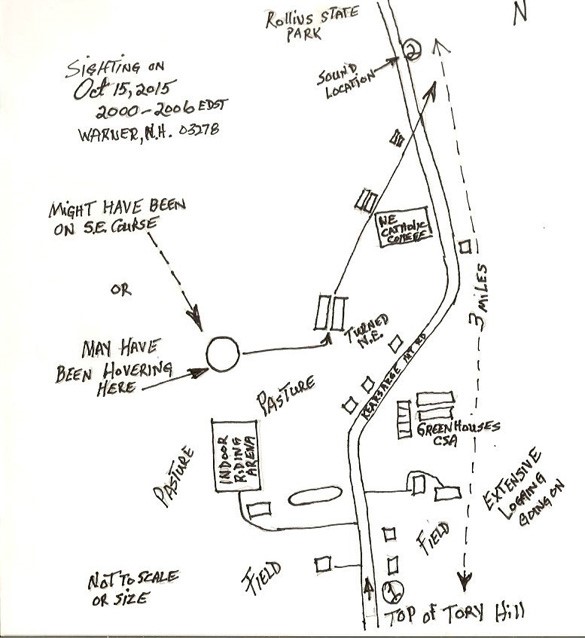 Rollins STATE
PARK
N
SIGHTING ON
Oct 15, 2015
2000-2006 EDST
WARNER, N.H. 03278
②
SOUND
LOCATION
MIGHT HAVE BEEN
ON S.E. COURSE
OR
MAY HAVE
BEEN HOVERING
HERE
NE
CATHOLIC
COLLEGE
TURNED
N.E.
3 MILES
KEARSARGE MT RD
PASTURE
PASTURE
INDOOR
RIDING
ARENA
GREENHOUSES
CSA
EXTENSIVE
LOGGING
GOING ON
FIELD
FIELD
NOT TO SCALE
OR SIZE
①
TOP of TORY Hill